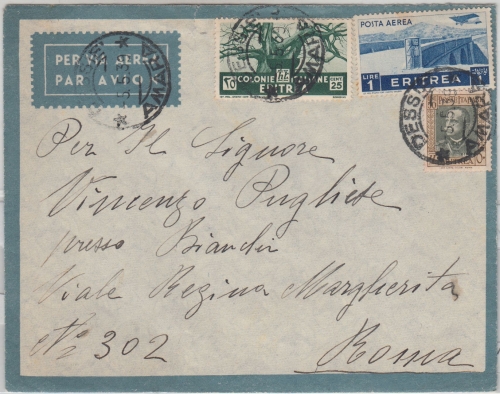 PER VIA AEREA
PAR AVION
DESSIE
AMARA
COLONIE ITALIANE
ERITREA
CENT 25
POSTA AEREA
LIRE 1 ERITREA
DESSIE
AMARA
POSTE ITALIANE
Per Il Signore
Vincenzo Pugliese
presso Bianchi
Viale Regina Margherita
No 302
Roma